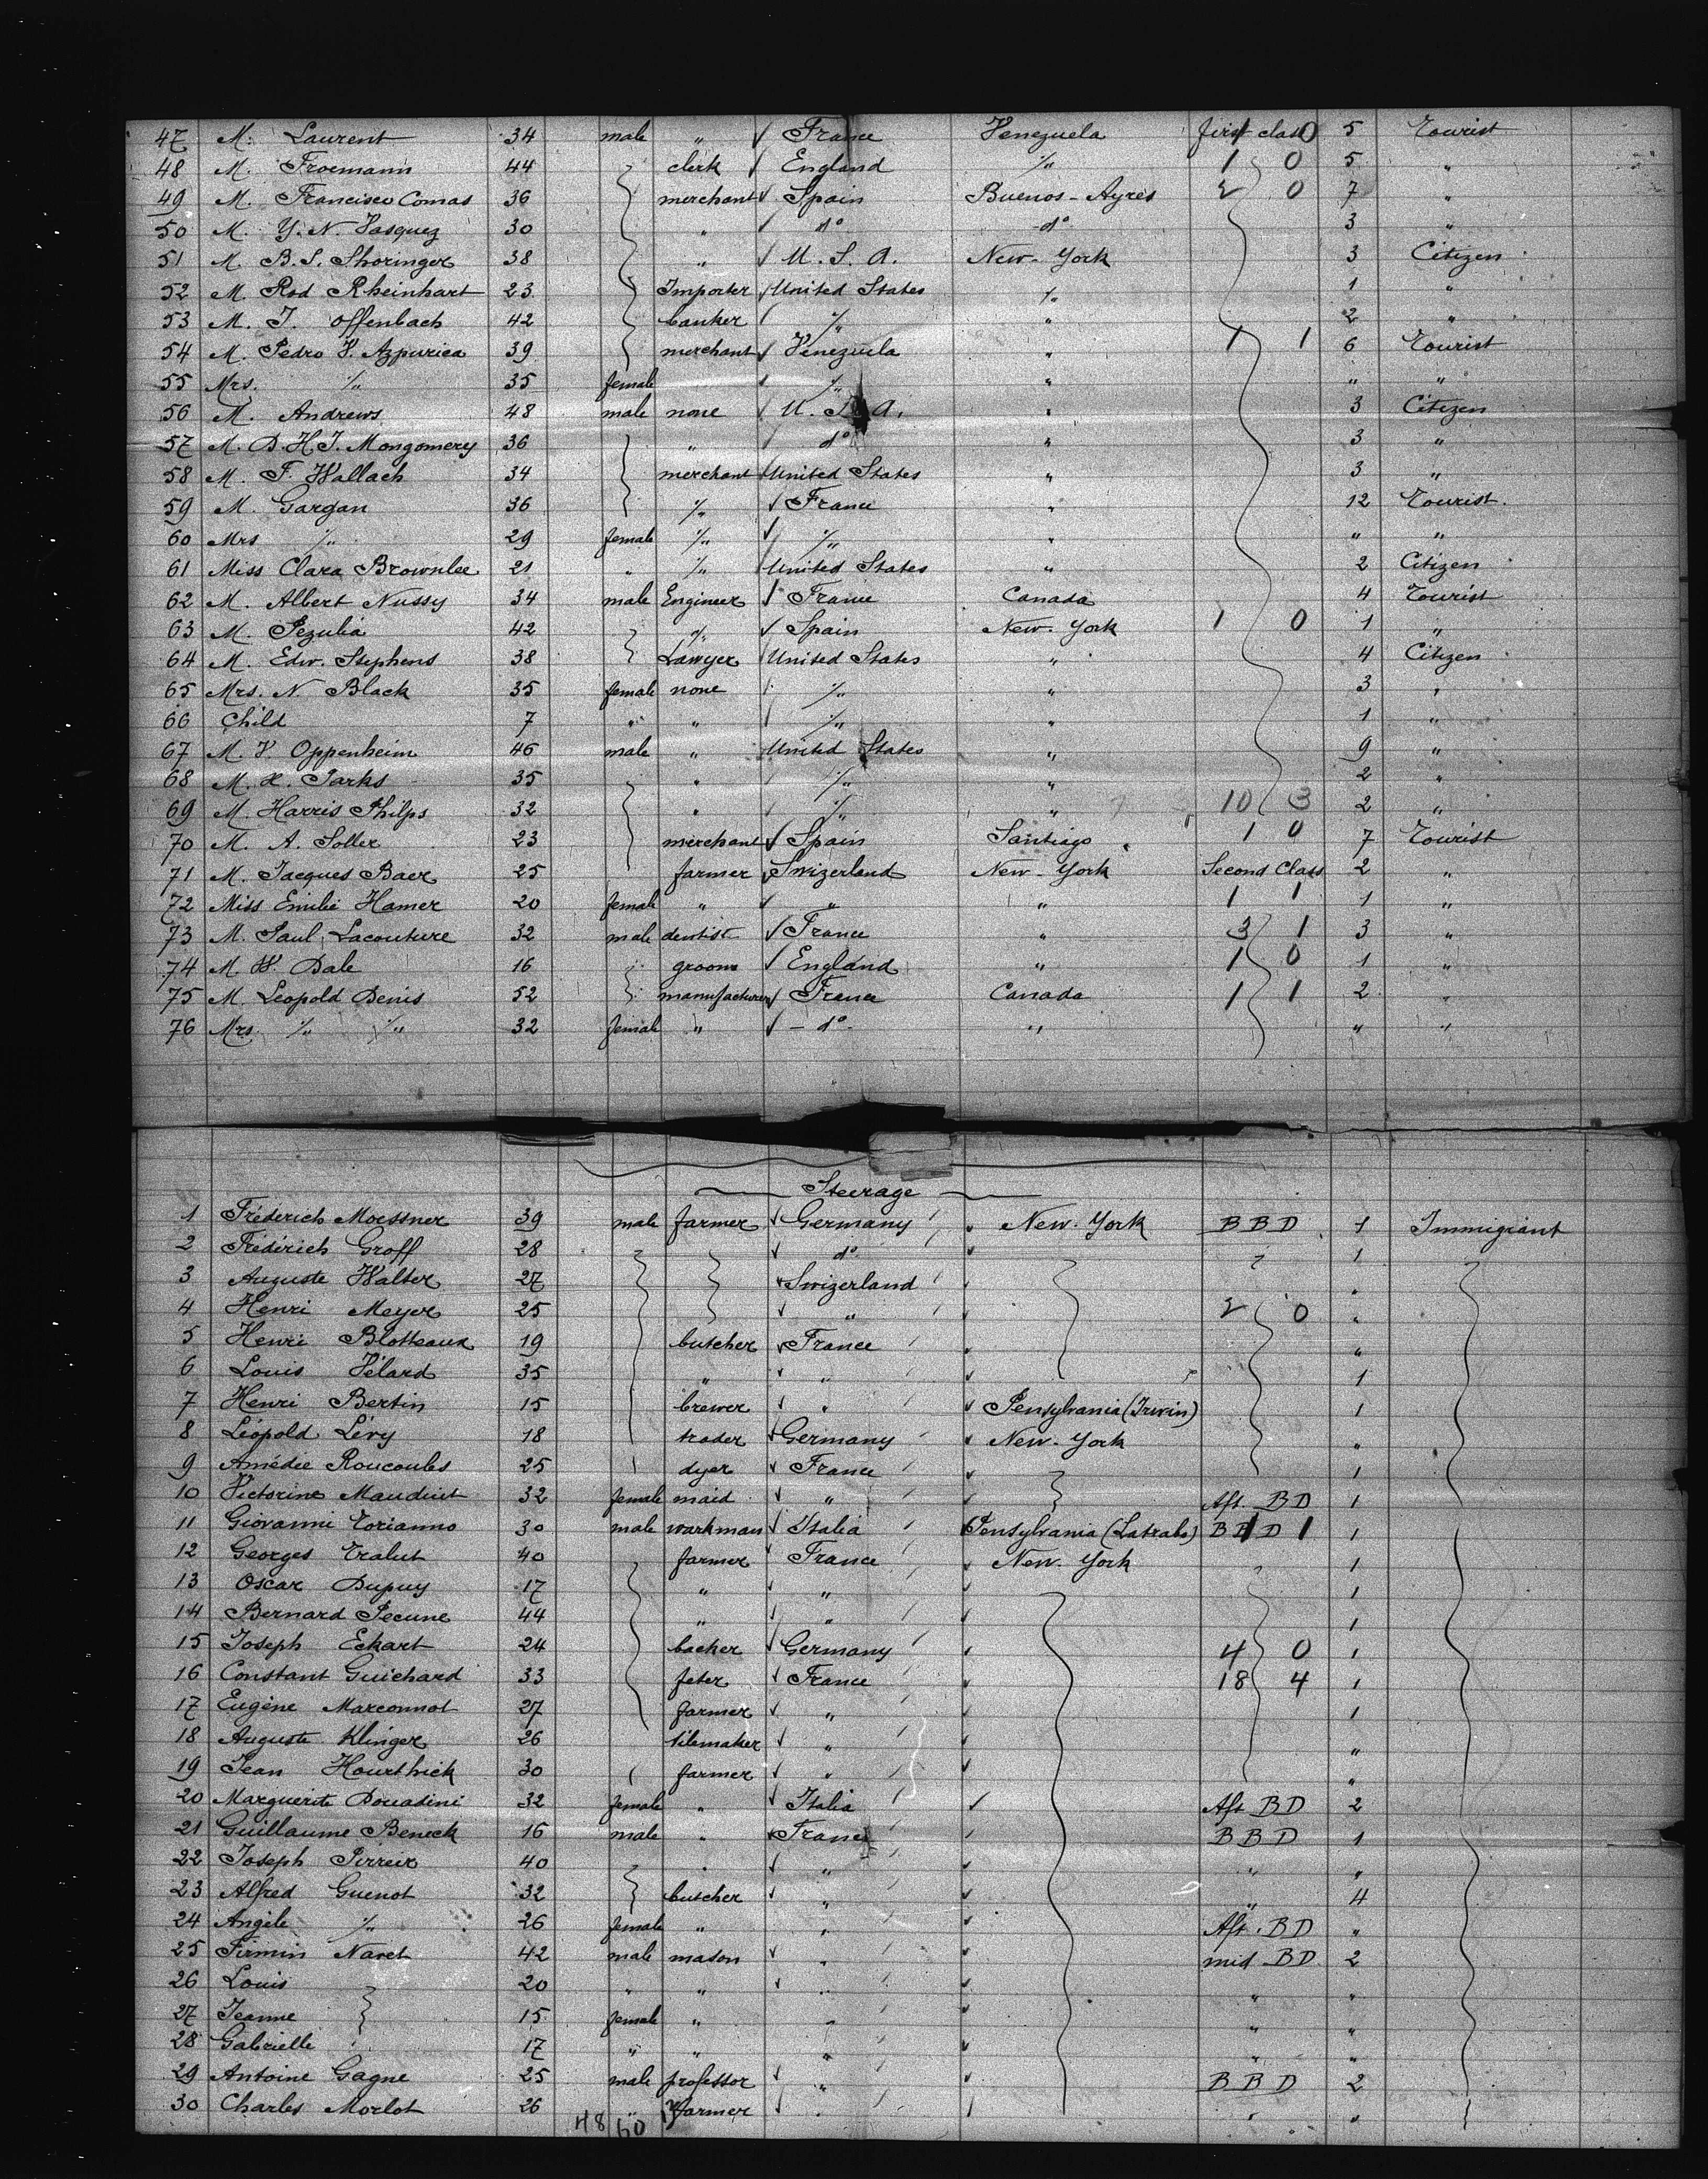 47 M. Laurent 34 male " France Venezuela first class 1 0 5 Tourist
48 M. Froemann 44 clerk England " 1 0 5 "
49 M. Francisco Comas 36 merchant Spain Buenos-Ayres 2 0 7 "
50 M. Y. N. Vasquez 30 " do do 3 "
51 M. B. S. Shoringer 38 " U. S. A. New-York 3 Citizen
52 M. Rod Rheinhart 23 Importer United States " 1 "
53 M. J. Offenbach 42 banker " " 2 "
54 M. Pedro V. Azpurica 39 merchant Venezuela " 1 1 6 Tourist
55 Mrs. " 35 female " " " "
56 M. Andrews 48 male none U. S. A. " 3 Citizen
57 M. D. H. J. Mongomery 36 " do " 3 "
58 M. F. Wallach 34 merchant United States " 3 "
59 M. Gargan 36 " France " 12 Tourist
60 Mrs " 29 female " " " " "
61 Miss Clara Brownlee 21 " " United States " 2 Citizen
62 M. Albert Nussy 34 male Engineer France Canada 4 Tourist
63 M. Pezulia 42 " Spain New-York 1 0 1 "
64 M. Edw. Stephens 38 Lawyer United States " 4 Citizen
65 Mrs. N. Black 35 female none " " 3 "
66 Child 7 " " " " 1 "
67 M. V. Oppenheim 46 male " United States " 9 "
68 M. H. Parks 35 " " " 2 "
69 M. Harris Philps 32 " " " 10 3 2 "
70 M. A. Soller 23 merchant Spain Santiago 1 0 7 Tourist
71 M. Jacques Baer 25 farmer Swizerland New-York Second Class 2 "
72 Miss Emilie Hamer 20 female " " " 1 1 1 "
73 M. Paul Lacouture 32 male dentist France " 3 1 3 "
74 M. W. Dale 16 groom England " 1 0 1 "
75 M. Leopold Denis 52 manufacturer France Canada 1 1 2 "
76 Mrs. " " 32 female " do " " "
Steerage
1 Fréderich Moessner 39 male farmer Germany New-York B B D 1 Immigrant
2 Frédérich Groff 28 do 1
3 Auguste Walter 27 Swizerland "
4 Henri Meyer 25 " 2 0 "
5 Henri Blotteaux 19 butcher France "
6 Louis Vélard 35 " " 1
7 Henri Bertin 15 brewer " Pensylvania (Irwin) 1
8 Léopold Lévy 18 trader Germany New-York "
9 Amédée Roucoules 25 dyer France 1
10 Victorine Mauduit 32 female maid " Aft. B D 1
11 Giovanni Torianno 30 male workman Italia Pensylvania (Latrabe) B B D 1 1 1
12 Georges Tralut 40 farmer France New-York 1
13 Oscar Dupuy 17 " " 1
14 Bernard Pecune 44 " " 1
15 Joseph Eckart 24 backer Germany 4 0 1
16 Constant Guichard 33 feter France 18 4 1
17 Eugène Marconnot 27 farmer " 1
18 Auguste Klinger 26 tilemaker " "
19 Jean Hourthick 30 farmer " "
20 Marguerite Douadini 32 female " Italia Aft B D 2
21 Guillaume Beneck 16 male " France B B D 1
22 Joseph Pirreix 40 " " " "
23 Alfred Guenot 32 butcher " " 4
24 Angèle " 26 female " " Aft. B D "
25 Firmin Naret 42 male mason " mid B D 2
26 Louis 20 " " " " "
27 Jeanne 15 female " " " "
28 Gabrielle 17 " " " " "
29 Antoine Gagne 25 male professor " B B D 2
30 Charles Morlot 26 " farmer " " "
48 60